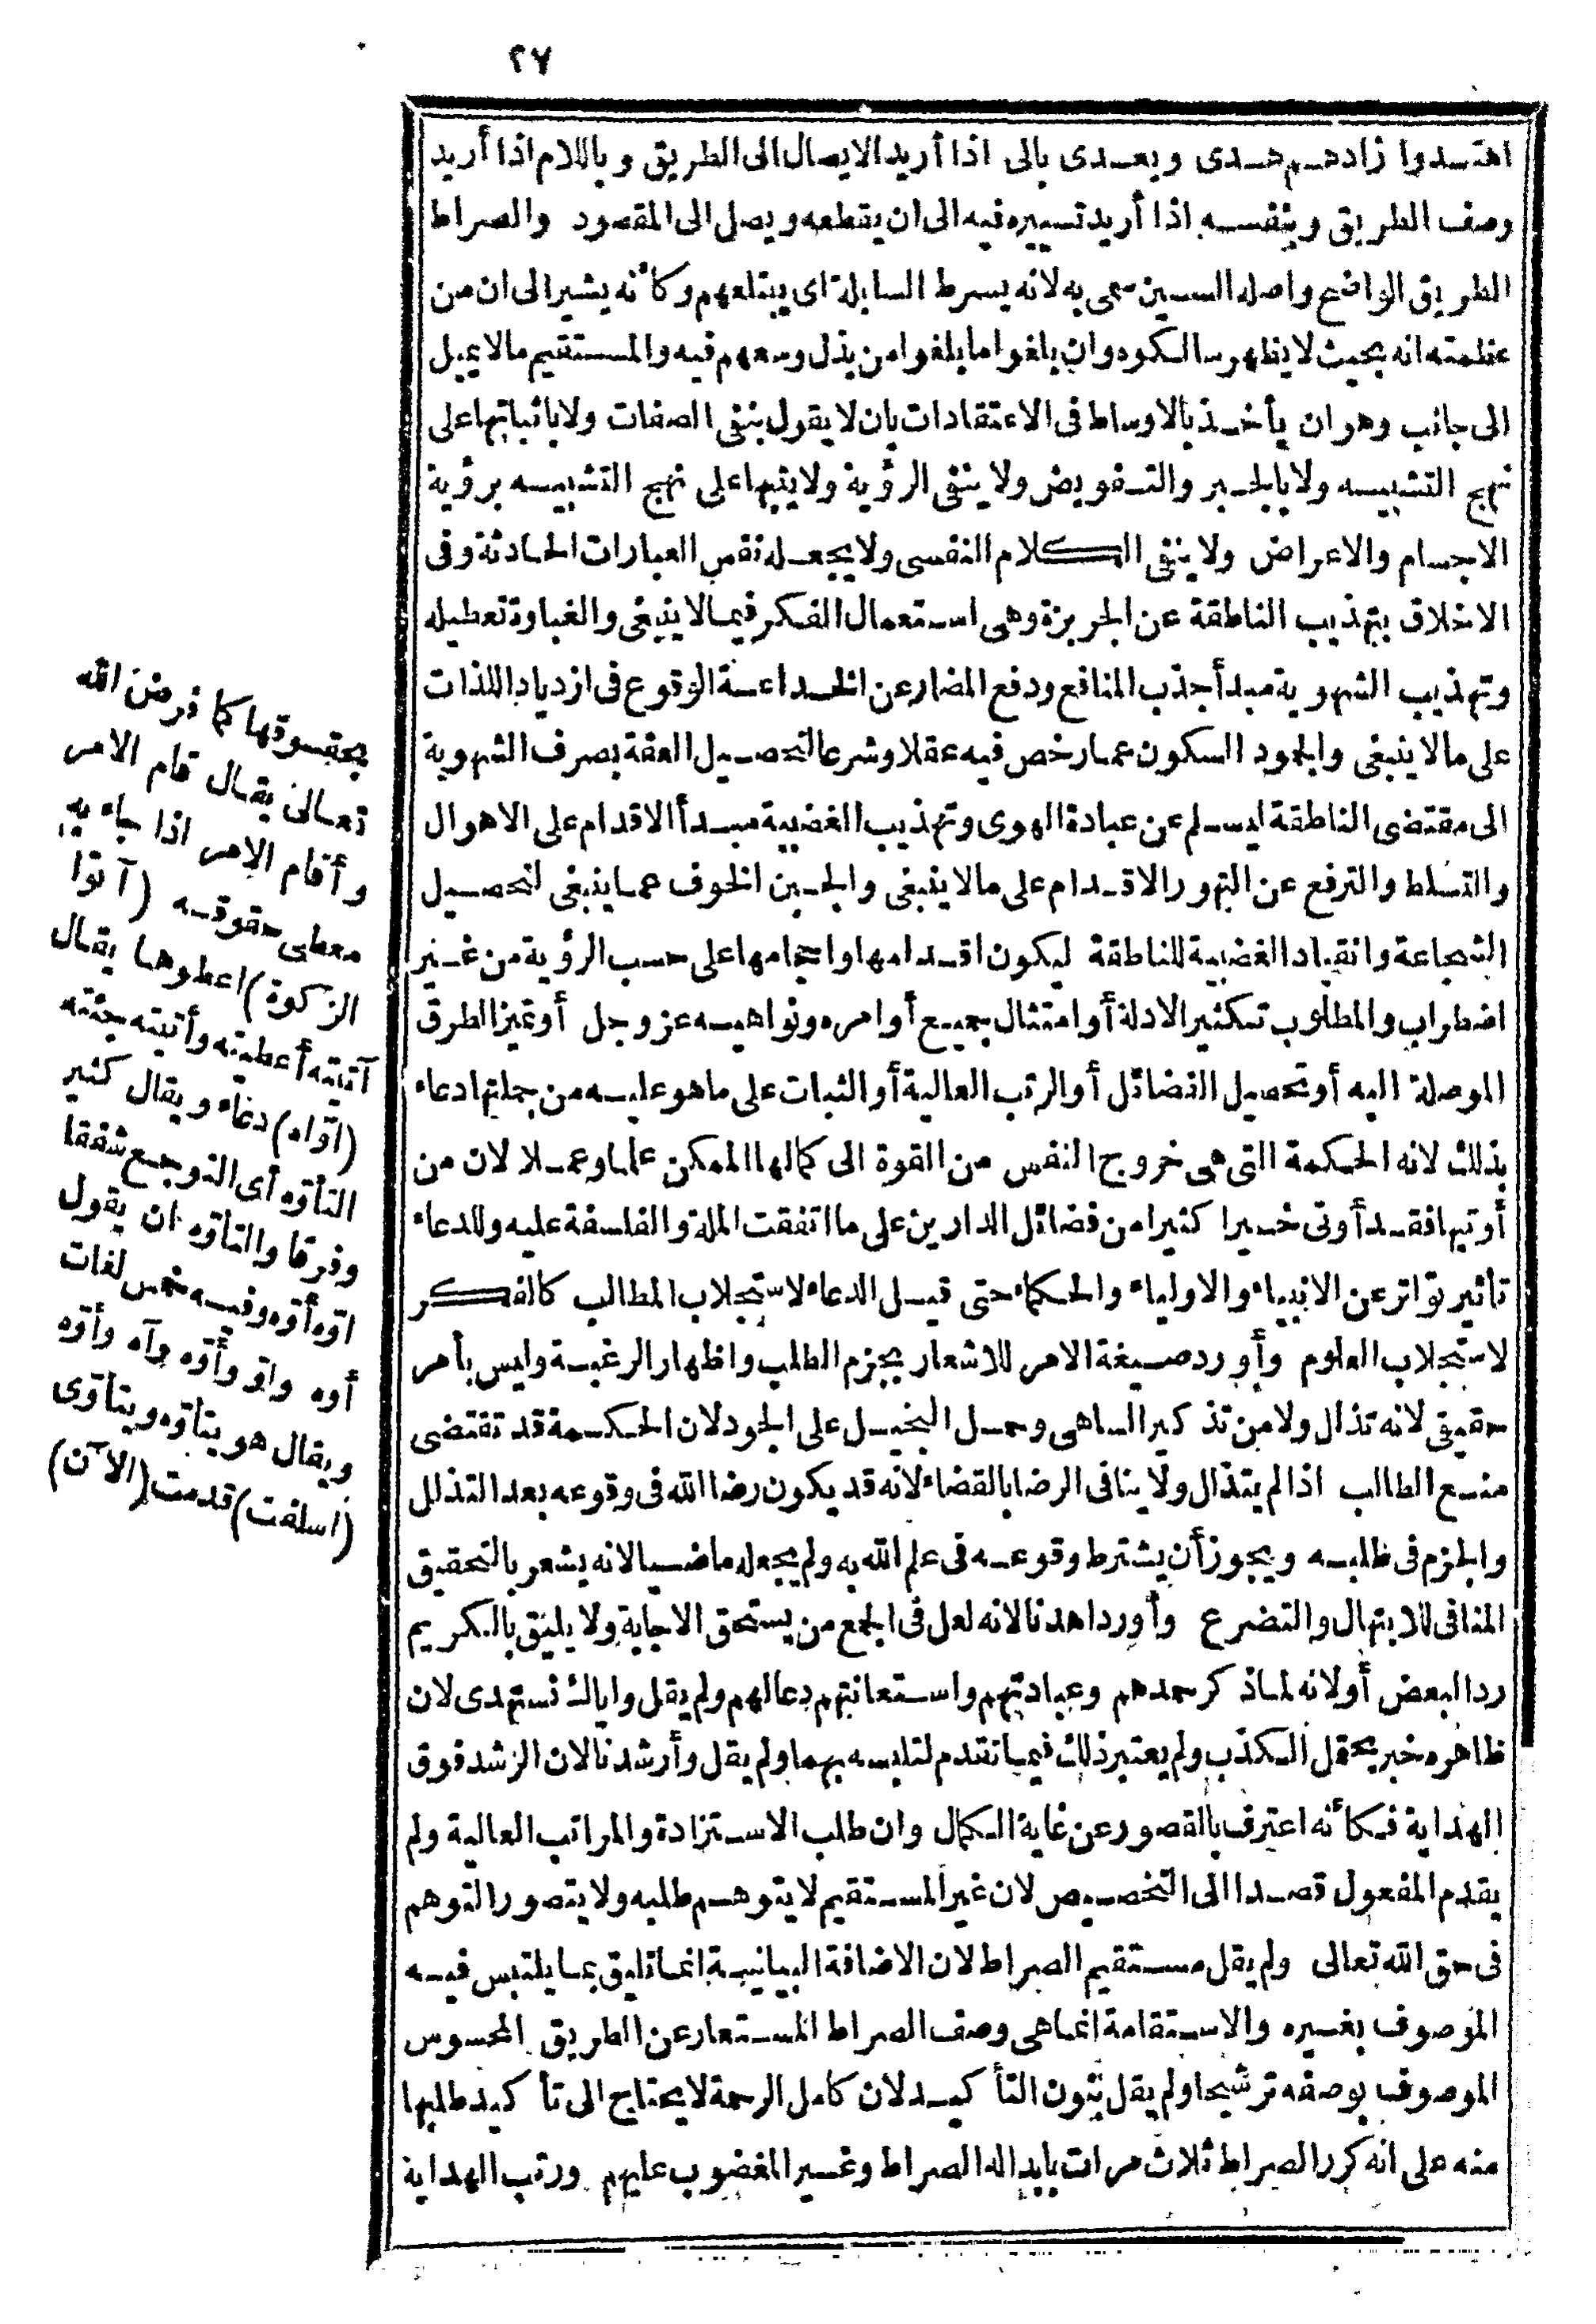 ٢٧
اهتدوا زادهم هدى ويعدى بالى اذا أريد الايصال الى الطريق وباللام اذا أريد
وصف الطريق وبنفسه اذا أريد تسييره فيه الى ان يقطعه ويصل الى المقصود والصراط
الطريق الواضح واصله السين سمى به لانه يسرط السابلة اى يبتلعهم وكأنه يشير الى ان من
عظمته انه بحيث لا يظهر سالكوه وان بلغوا ما بلغوا من بذل وسعهم فيه والمستقيم مالا يميل
الى جانب وهو ان يأخذ بالاوساط فى الاعتقادات بان لا يقول بنفى الصفات ولا باثباتها على
نهج التشبيه ولا بالجبر والتفويض ولا ينفى الرؤية ولا يثبتها على نهج التشبيه برؤية
الاجسام والاعراض ولا ينفى الكلام النفسى ولا يجعله نفس العبارات الحادثة وفى
الاخلاق بتهذيب الناطقة عن الجربزة وهى استعمال الفكر فيما لا ينبغى والغباوة تعطيله
وتهذيب الشهوية مبدأ جذب المنافع ودفع المضار عن الخداعة الوقوع فى ازدياد اللذات
على ما لا ينبغى والجمود السكون عما رخص فيه عقلا وشرعا لتحصيل العفة بصرف الشهوية
الى مقتضى الناطقة ليسلم عن عبادة الهوى وتهذيب الغضبية مبدأ الاقدام على الاهوال
والتسلط والترفع عن التهور الاقدام على ما لا ينبغى والجبن الخوف عما ينبغى لتحصيل
الشجاعة وانقياد الغضبية للناطقة ليكون اقدامها واحجامها على حسب الرؤية من غير
اضطراب والمطلوب تكثير الادلة أو امتثال جميع أوامره ونواهيه عز وجل أو تميز الطرق
الموصلة اليه أو تحصيل الفضائل أو الرتب العالية أو الثبات على ما هو عليه من جملتها دعاء
بذلك لانه الحكمة التى هى خروج النفس من القوة الى كمالها الممكن علما وعملا لان من
أوتيها فقد أوتى خيرا كثيرا من فضائل الدارين على ما اتفقت الملة والفلاسفة عليه وللدعاء
تأثير تواتر عن الانبياء والاولياء والحكماء حتى قيل الدعاء لاستجلاب المطالب كالفكر
لاستجلاب العلوم وأورد صيغة الامر للاشعار بجزم الطلب واظهار الرغبة وليس بأمر
حقيقى لانه تذلل ولا من تذكير الساهى وحمل البخيل على الجود لان الحكمة قد تقتضى
منع الطالب اذا لم يتذلل ولا ينافى الرضا بالقضاء لانه قد يكون رضا الله فى وقوعه بعد التذلل
والجزم فى طلبه ويجوز أن يشترط وقوعه فى علم الله به ولم يجعله ماضيا لانه يشعر بالتحقيق
المنافى للابتهال والتضرع وأورد اهدنا لانه لعل فى الجمع من يستحق الاجابة ولا يليق بالكريم
رد البعض أو لانه لما ذكر حمدهم وعبادتهم واستعانتهم دعا لهم ولم يقل واياك نستهدى لان
ظاهره خبر يحتمل الكذب ولم يعتبر ذلك فيما تقدم لتلبسه بهما ولم يقل وأرشدنا لان الرشد فوق
الهداية فكأنه اعترف بالقصور عن غاية الكمال وان طلب الاستزادة والمراتب العالية ولم
يقدم المفعول قصدا الى التخصيص لان غير المستقيم لا يتوهم طلبه ولا يتصور التوهم
فى حق الله تعالى ولم يقل مستقيم الصراط لان الاضافة البيانية انما تليق بما يلتبس فيه
الموصوف بغيره والاستقامة انما هى وصف الصراط المستعار عن الطريق المحسوس
الموصوف بوصفه ترشيحا ولم يقل بنون التأكيد لان كامل الرحمة لا يحتاج الى تأكيد طلبها
منه على انه كرر الصراط ثلاث مرات بابداله الصراط وغير المغضوب عليهم ورتب الهداية
بحقوقها كما فرض الله
تعالى يقال قام الامر
وأقام الامر اذا جاء به
معطى حقوقه (آتوا
الزكوة) اعطوها يقال
آتيته أعطيته وأتيته جئته
(اوّاه) دعّاء ويقال كثير
التأوّه أى التوجع شفقا
وفرقا والتأوّه ان يقول
اوّه أوّه وفيه خمس لغات
أوه واوّ وأوّه وآه وأوّه
ويقال هو يتأوّه ويتأوّى
(اسلفت) قدمت (الآن)